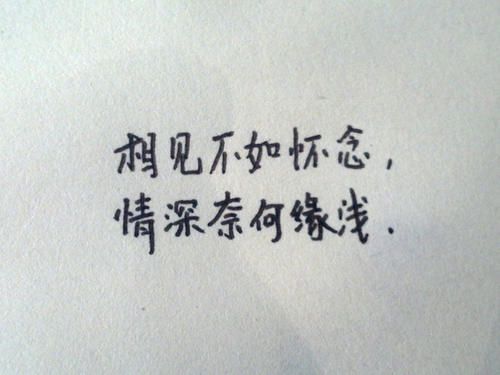 相见不如怀念,
情深奈何缘浅.